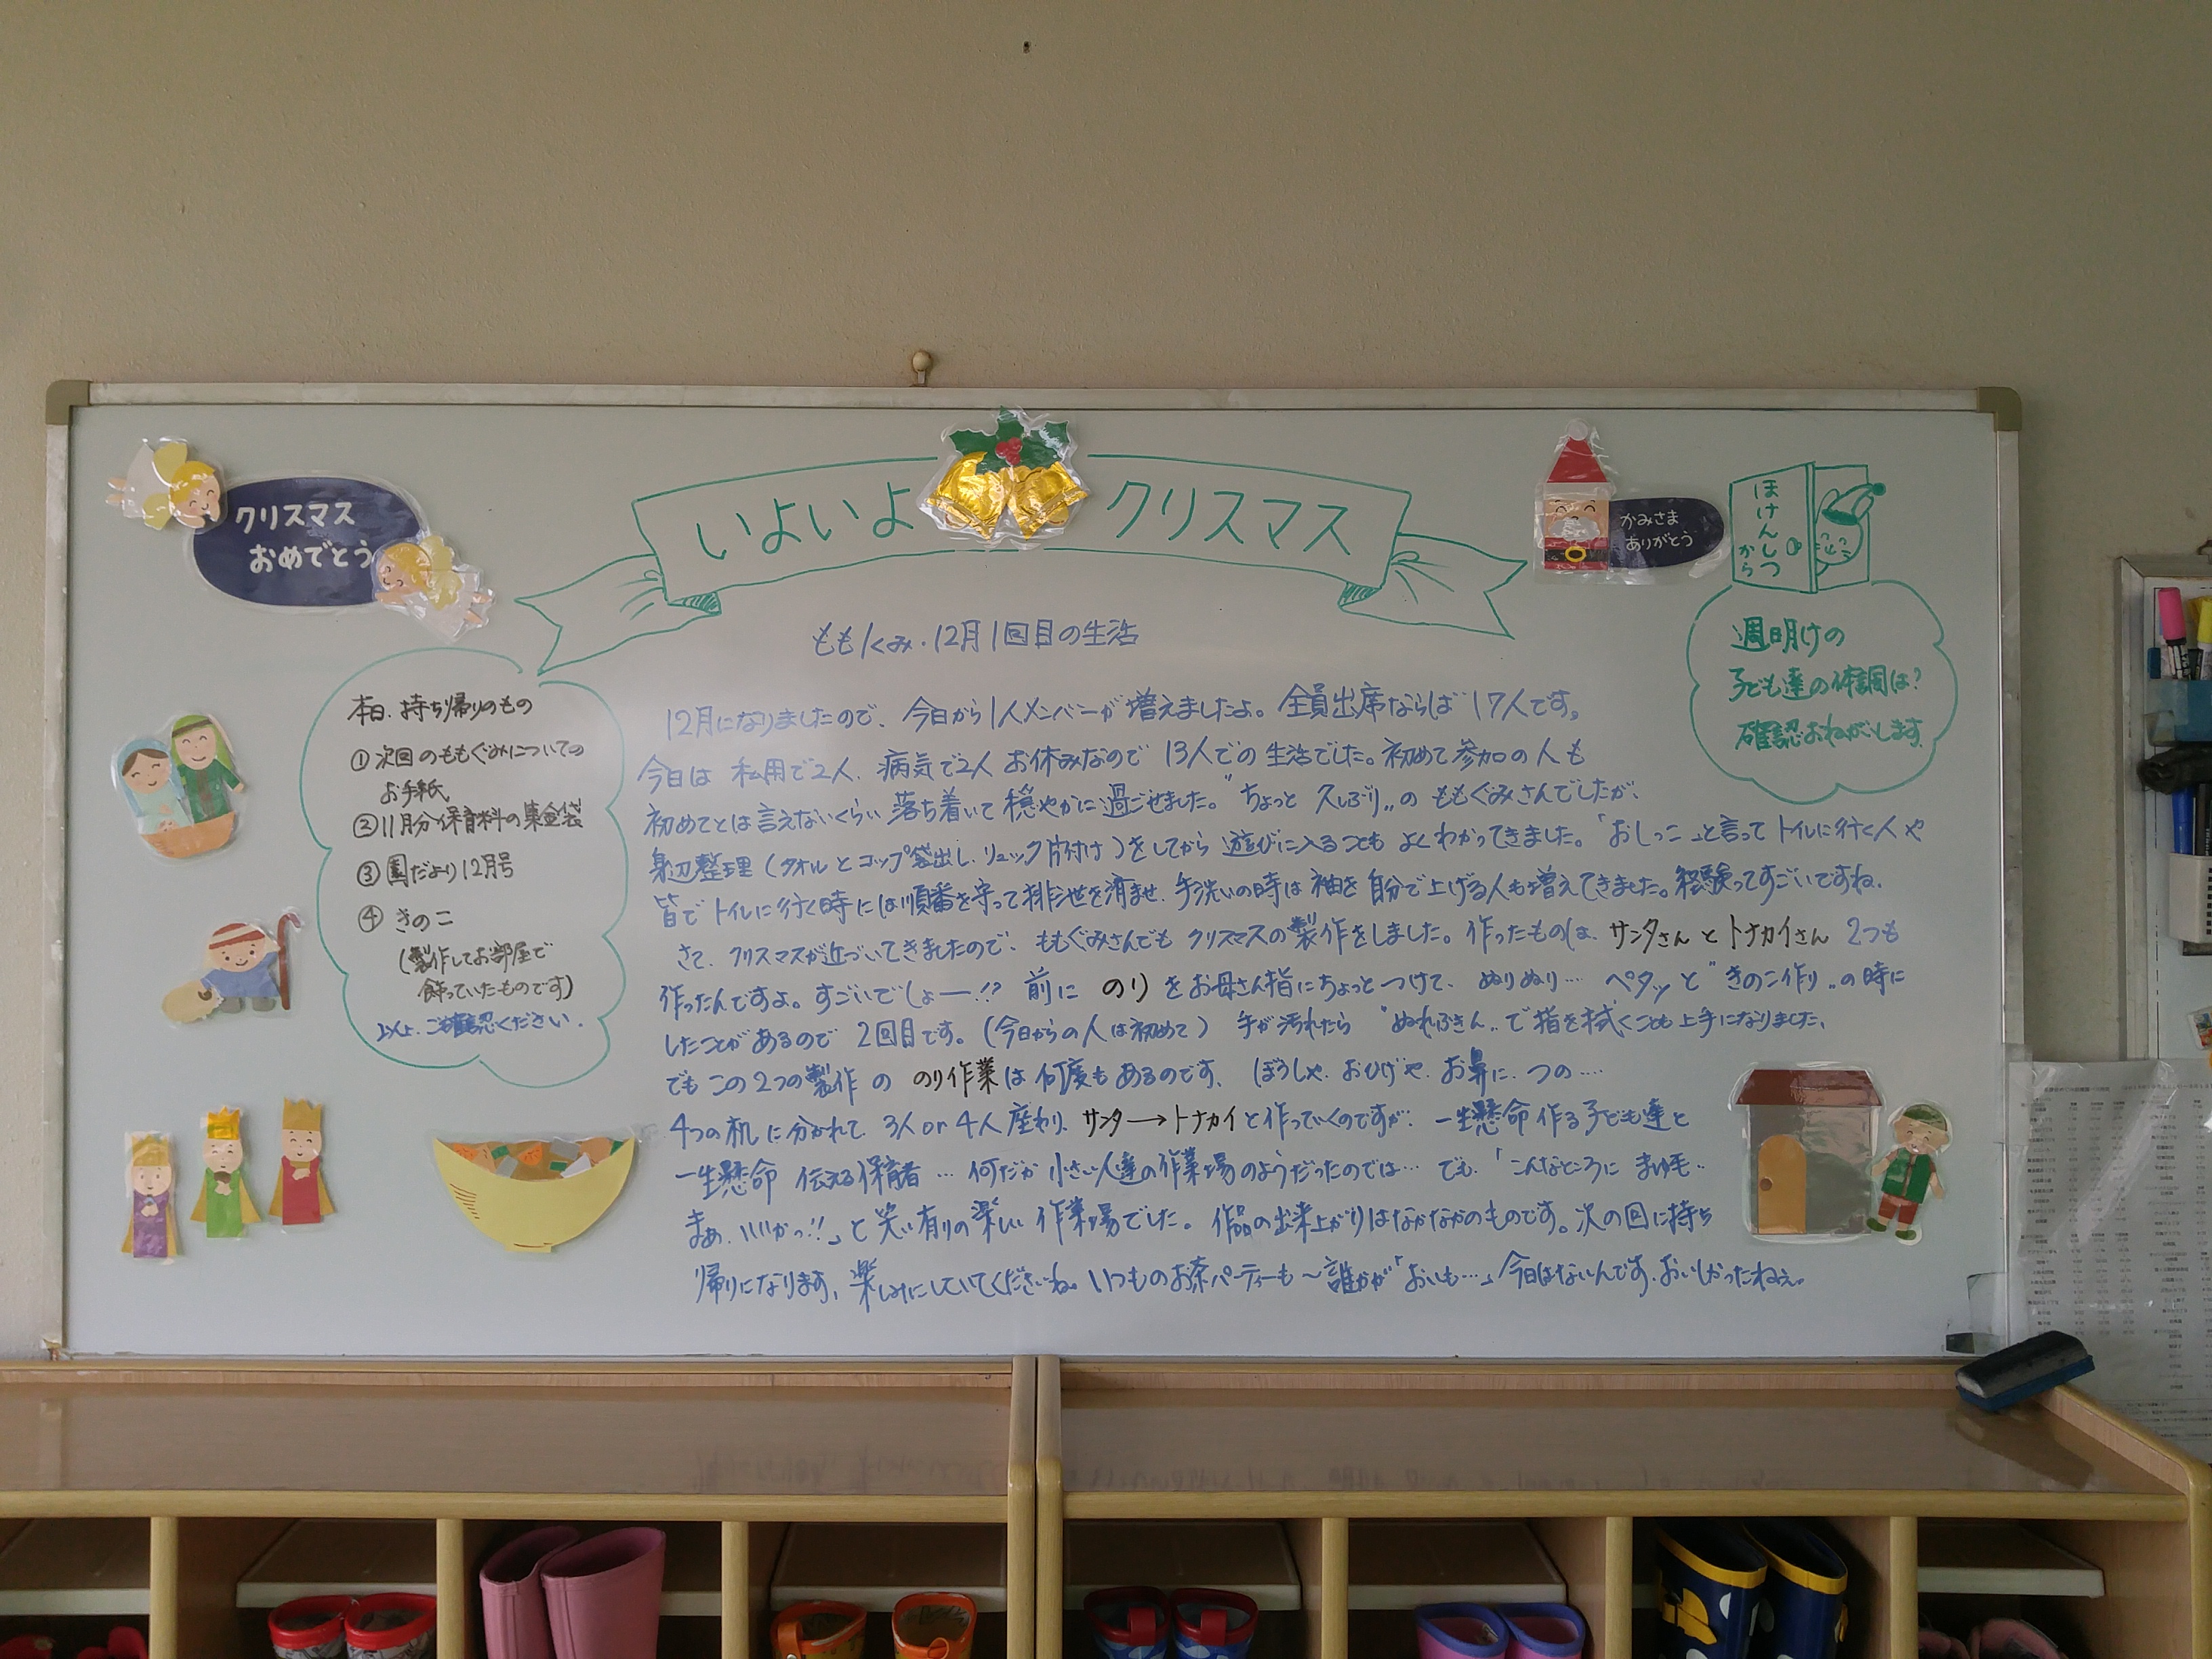 クリスマス
おめでとう
いよいよ クリスマス
かみさま
ありがとう
ほけんしつ
から
週明けの
子ども達の体調は?
確認おねがいします。
本日、持ち帰りのもの
①次回のももぐみについての
お手紙
②11月分保育料の集金袋
③園だより12月号
④きのこ
(製作してお部屋で
飾っていたものです)
以上、ご確認ください。
ももぐみ・12月1回目の生活
12月になりましたので、今日から1人メンバーが増えましたよ。全員出席ならば17人です。
今日は 私用で2人、病気で2人 お休みなので 13人での生活でした。初めて参加の人も
初めてとは言えないくらい 落ち着いて 穏やかに過ごせました。"ちょっと 久しぶり"の ももぐみさんでしたが、
身辺整理 (タオルとコップ袋出し、リュック片付け)をしてから 遊びに入ることも よくわかってきました。「おしっこ」と言って トイレに行く人や
皆で トイレに行く時には順番を守って排泄を済ませ、手洗いの時は 袖を 自分で上げる人も増えてきました。経験ってすごいですね。
さて、クリスマスが近づいてきましたので、ももぐみさんでも クリスマスの製作をしました。作ったものは、サンタさん と トナカイさん 2つも
作ったんですよ。すごいでしょー!? 前に のり をお母さん指にちょっとつけて、ぬりぬり… ペタッと "きのこ作り"の時に
したことがあるので 2回目です。(今日からの人は初めて) 手が汚れたら "ぬれぶきん"で指を拭くことも上手になりました。
でも この2つの製作 の のり作業は 何度もあるのです、ぼうしや、おひげや、お鼻に、つの……
4つの机に分かれて 3人or4人座わり、サンタ→トナカイと作っていくのですが、一生懸命作る子ども達と
一生懸命 伝える保育者 … 何だか 小さい人達の作業場のようだったのでは… でも、「こんなところに まゆ毛‥
まぁ、いいかっ!!」と 笑い有りの楽しい 作業場でした。作品の出来上がりはなかなかのものです。次の回に持ち
帰りになります。楽しみにしていてくださいね。いつものお茶パーティーも～誰かが「おいも…」今日はないんです、おいしかったねぇ。